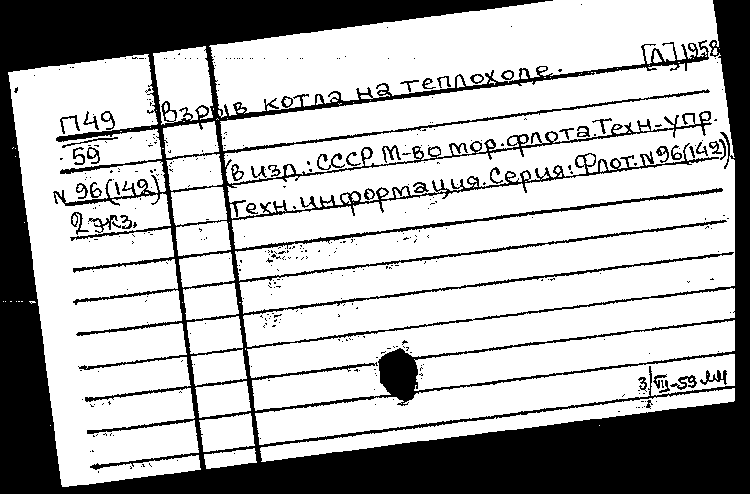 П49 Взрыв котла на теплоходе. [Л.] 1958
59
(В изд.: СССР. М-во мор. флота. Техн. упр.
N 96(142) Техн. информация. Серия: Флот. N 96(142)).
2 экз.
3/VIII-59